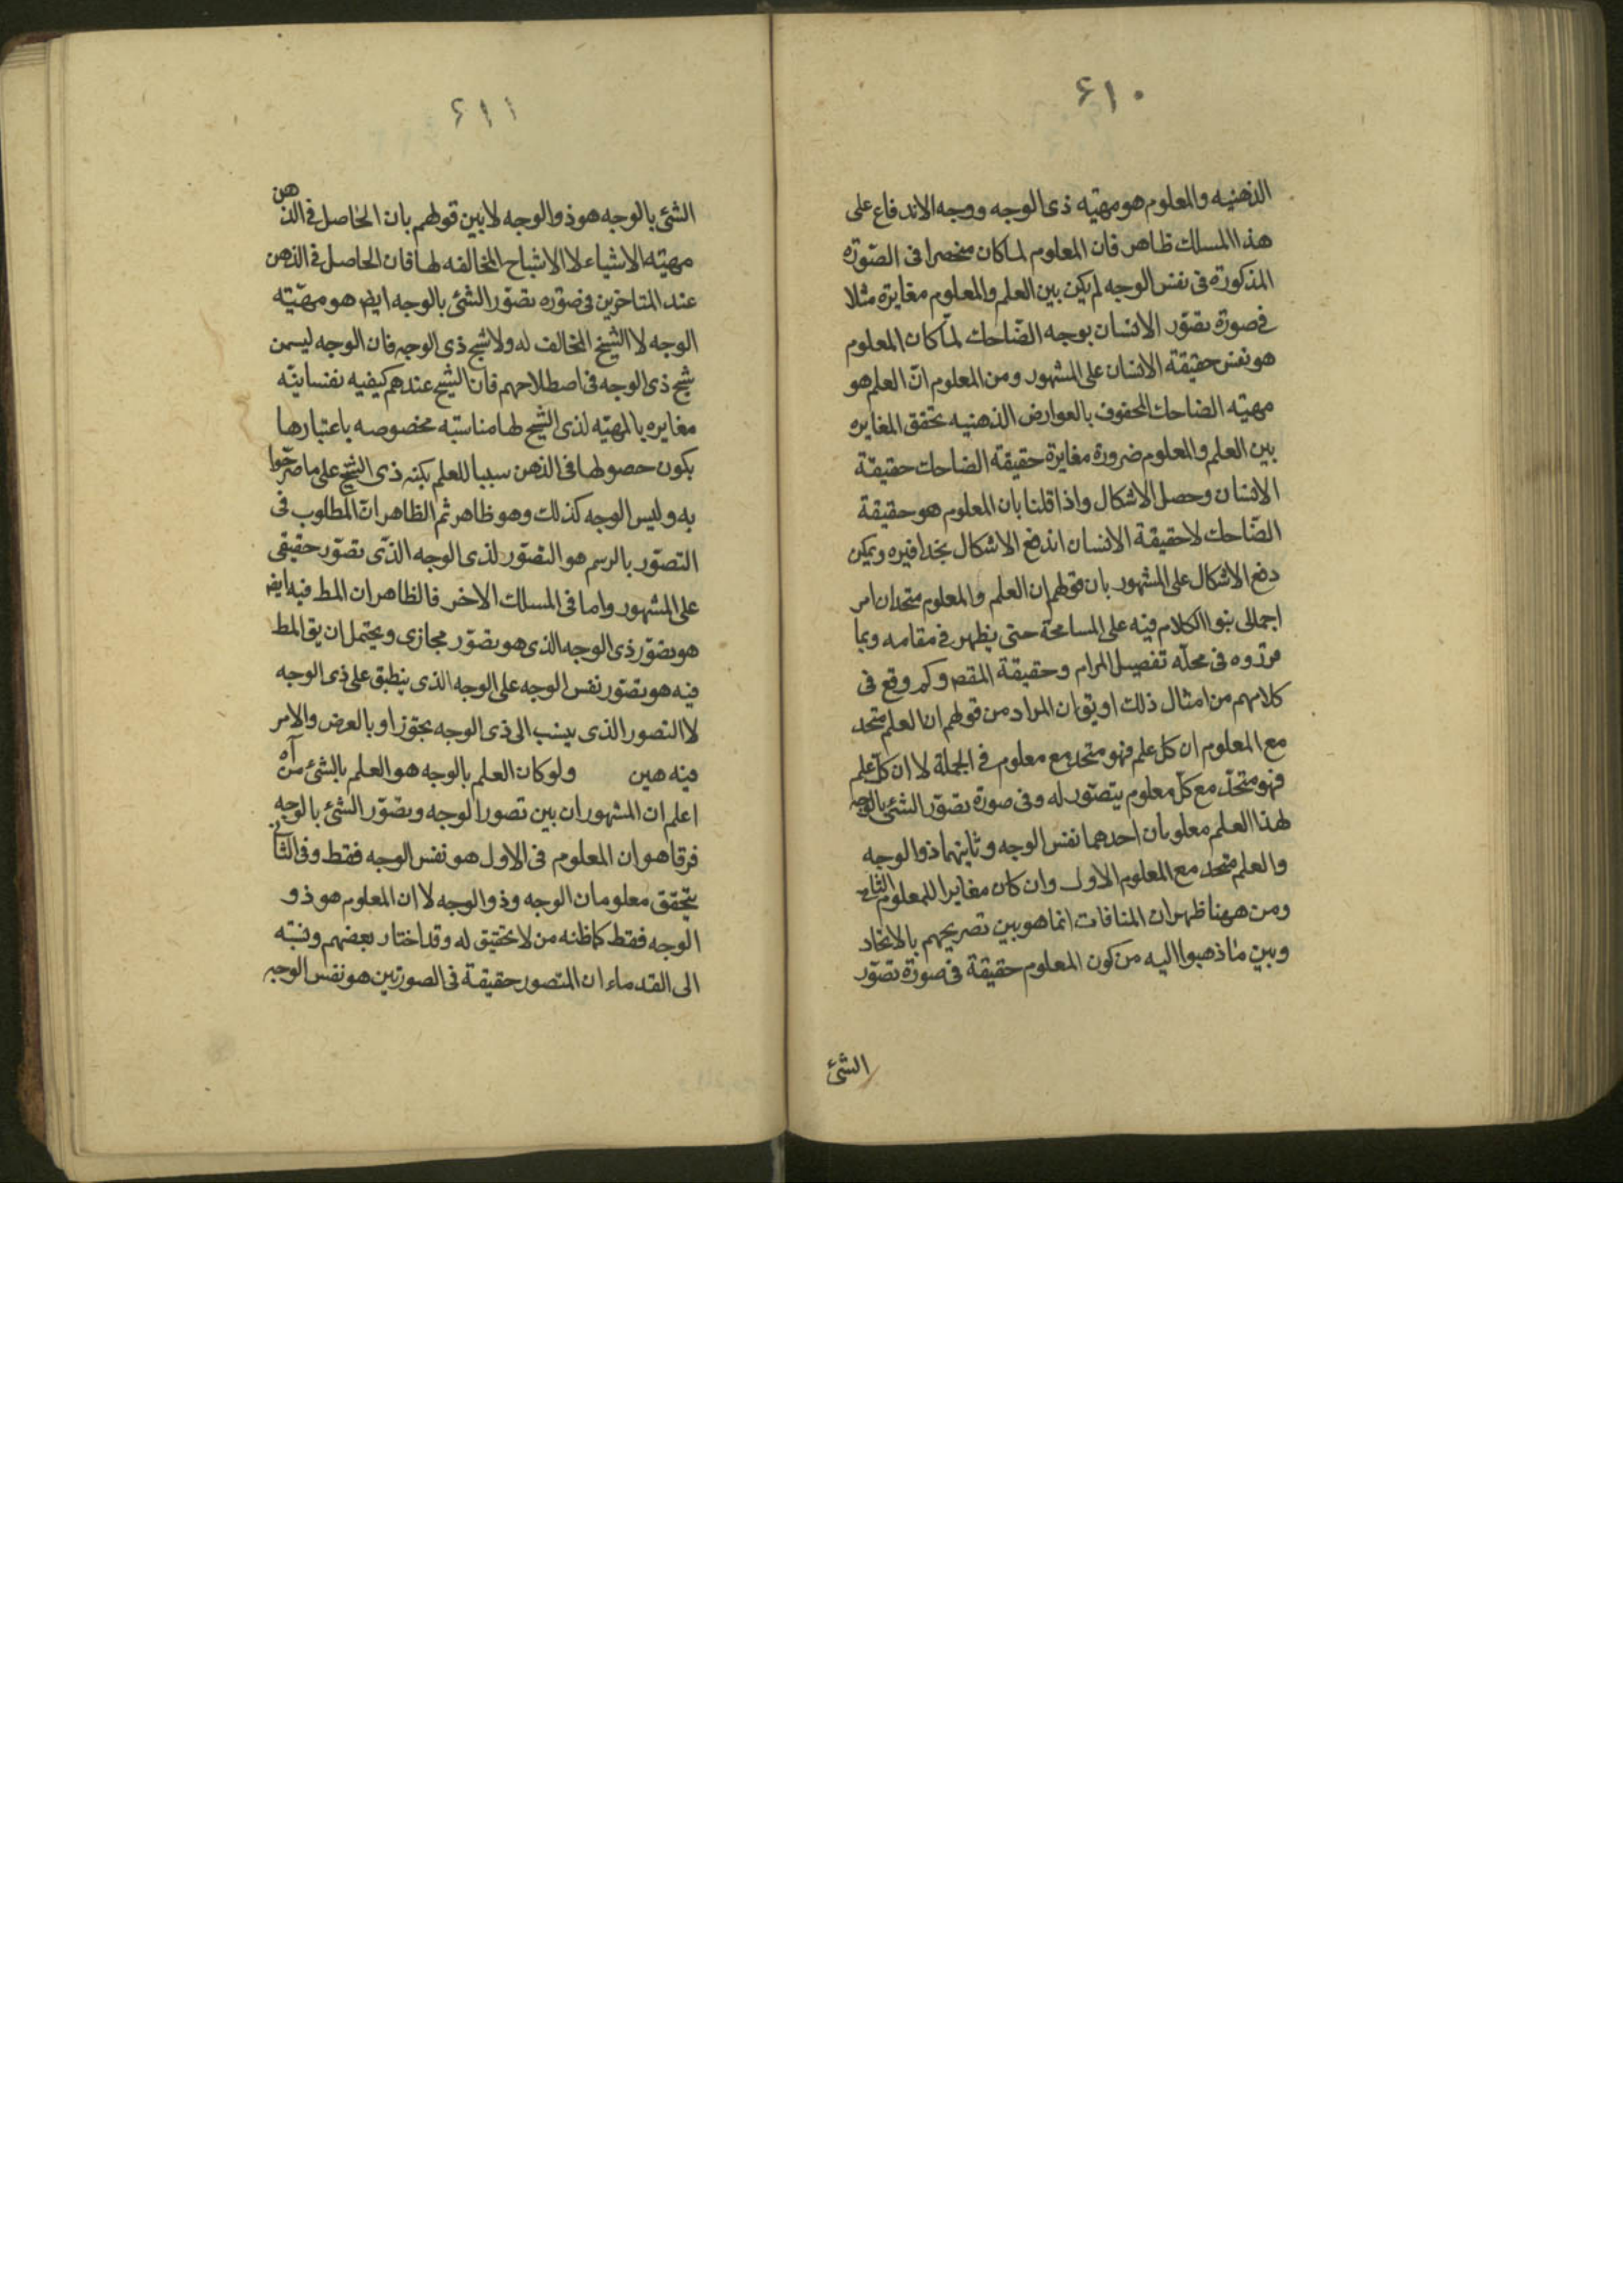 ۶۱۰
الذهنيه والمعلوم هو مهيّه ذى الوجه ووجه الاندفاع على
هذا المسلك ظاهر فان المعلوم لما كان منحصرا فى الصّورة
المذكورة فى نفس الوجه لم يكن بين العلم والمعلوم مغايرة مثلا
فى صورة تصوّر الانسان بوجه الضّاحك لمّا كان المعلوم
هو نفس حقيقة الانسان على المشهور ومن المعلوم انّ العلم هو
مهيّه الضاحك المحفوف بالعوارض الذهنيه تحقق المغايره
بين العلم والمعلوم ضرورة مغايرة حقيقة الضاحك حقيقة
الانسان وحصل الاشكال واذا قلنا بان المعلوم هو حقيقة
الضّاحك لا حقيقة الانسان اندفع الاشكال بحذافيره ويمكن
دفع الاشكال على المشهور بان قولهم ان العلم والمعلوم متحدان امر
اجمالى بنوا الكلام فيه على المسامحة حتى يظهر فى مقامه وبما
قرّروه فى محلّه تفصيل المرام وحقيقة المقص وكم وقع فى
كلامهم من امثال ذلك او يق ان المراد من قولهم ان العلم متحد
مع المعلوم ان كل علم فهو متحد مع معلوم فى الجملة لا ان كلّ علم
فهو متحد مع كلّ معلوم يتصوّر له وفى صورة تصوّر الشئ بالوجه
لهذا العلم معلومان احدهما نفس الوجه وثانيهما ذو الوجه
والعلم متحد مع المعلوم الاول وان كان مغايرا للمعلوم الثانى
ومن ههنا ظهر ان المنافات انما هو بين تصريحهم بالاتحاد
وبين ما ذهبوا اليه من كون المعلوم حقيقة فى صورة تصوّر
الشئ
۶۱۱
الشئ بالوجه هو ذو الوجه لا بين قولهم بان الحاصل فى الذهن
مهيّه الاشياء لا الاشباح المخالفه لها فان الحاصل فى الذهن
عند المتاخرين فى صوره تصوّر الشئ بالوجه ايض هو مهيّته
الوجه لا الشبح المخالف له ولا شبح ذى الوجه فان الوجه ليس من
شبح ذى الوجه فى اصطلاحهم فان الشبح عندهم كيفيه نفسانيّه
مغايره بالمهيّه لذى الشبح لها مناسبته مخصوصه باعتبارها
يكون حصولها فى الذهن سببا للعلم بكنه ذى الشبح على ما صرّحوا
به وليس الوجه كذلك وهو ظاهر ثم الظاهر انّ المطلوب فى
التصوّر بالرسم هو التصوّر لذى الوجه الذّى تصوّر حقيقى
على المشهور واما فى المسلك الاخر فالظاهر ان المط فيه ايض
هو تصوّر ذى الوجه الذى هو تصوّر مجازى ويحتمل ان يق المط
فيه هو تصوّر نفس الوجه على الوجه الذى ينطبق على ذى الوجه
لا التصور الذى ينسب الى ذى الوجه بتجوّز او بالعرض والامر
فيه هين ولو كان العلم بالوجه هو العلم بالشئ من آه
اعلم ان المشهور ان بين تصور الوجه وتصّور الشئ بالوجه
فرقا هو ان المعلوم فى الاول هو نفس الوجه فقط وفى الثانى
يتحقق معلومان الوجه وذو الوجه لا ان المعلوم هو ذو
الوجه فقط كما ظنه من لا تحقيق له وقد اختار بعضهم ونسبه
الى القدماء ان المتصور حقيقة فى الصورتين هو نفس الوجه